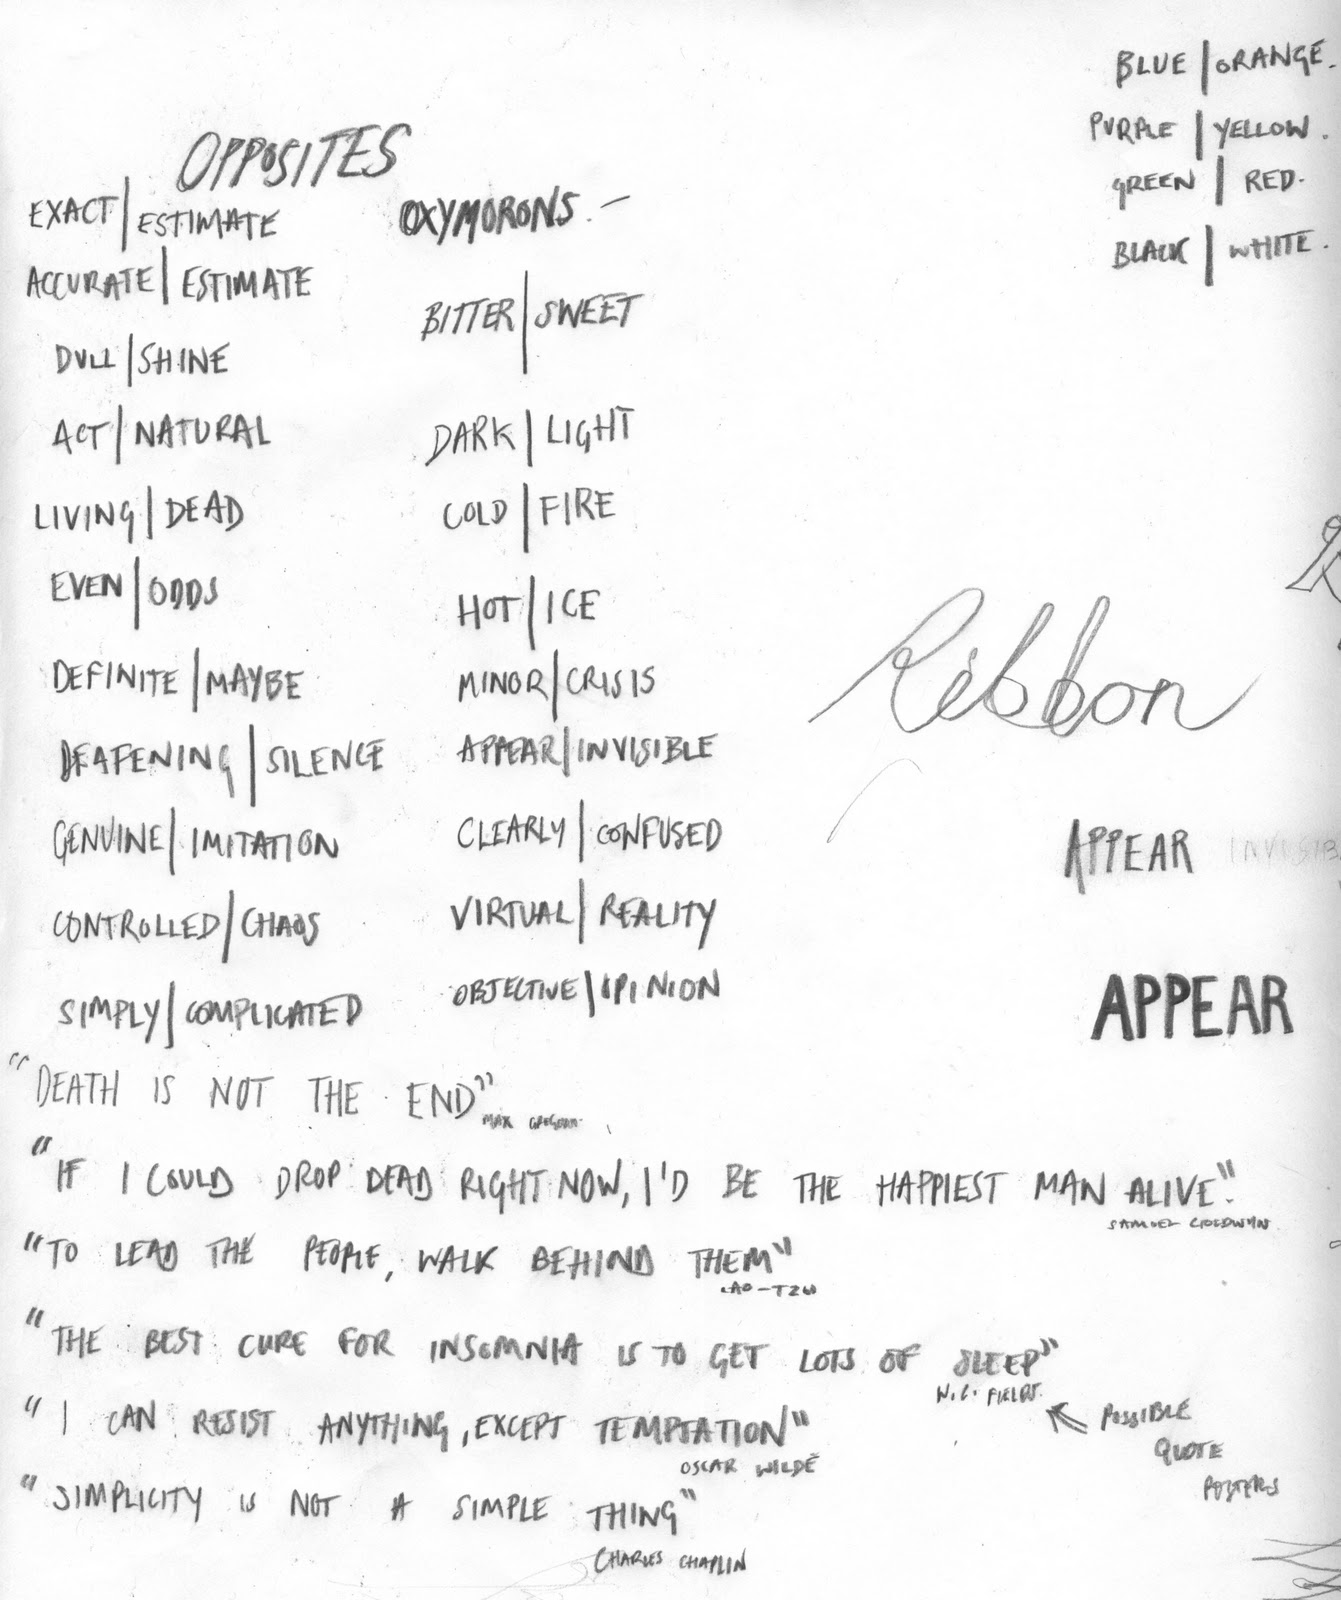 BLUE | ORANGE.
PURPLE | YELLOW.
GREEN | RED.
BLACK | WHITE.
OPPOSITES
EXACT | ESTIMATE
ACCURATE | ESTIMATE
DULL | SHINE
ACT | NATURAL
LIVING | DEAD
EVEN | ODDS
DEFINITE | MAYBE
DEAFENING | SILENCE
GENUINE | IMITATION
CONTROLLED | CHAOS
SIMPLY | COMPLICATED
OXYMORONS. -
BITTER | SWEET
DARK | LIGHT
COLD | FIRE
HOT | ICE
MINOR | CRISIS
APPEAR | INVISIBLE
CLEARLY | CONFUSED
VIRTUAL | REALITY
OBJECTIVE | OPINION
Ribbon
APPEAR INVISIB
APPEAR
"DEATH IS NOT THE END"
MAX
"IF I COULD DROP DEAD RIGHT NOW, I'D BE THE HAPPIEST MAN ALIVE".
SAMUEL GOLDWYN
"TO LEAD THE PEOPLE, WALK BEHIND THEM"
LAO-TZU
"THE BEST CURE FOR INSOMNIA IS TO GET LOTS OF SLEEP"
W.C. FIELDS.
"I CAN RESIST ANYTHING, EXCEPT TEMPTATION"
OSCAR WILDE
"SIMPLICITY IS NOT A SIMPLE THING"
CHARLES CHAPLIN
POSSIBLE
QUOTE
POSTERS